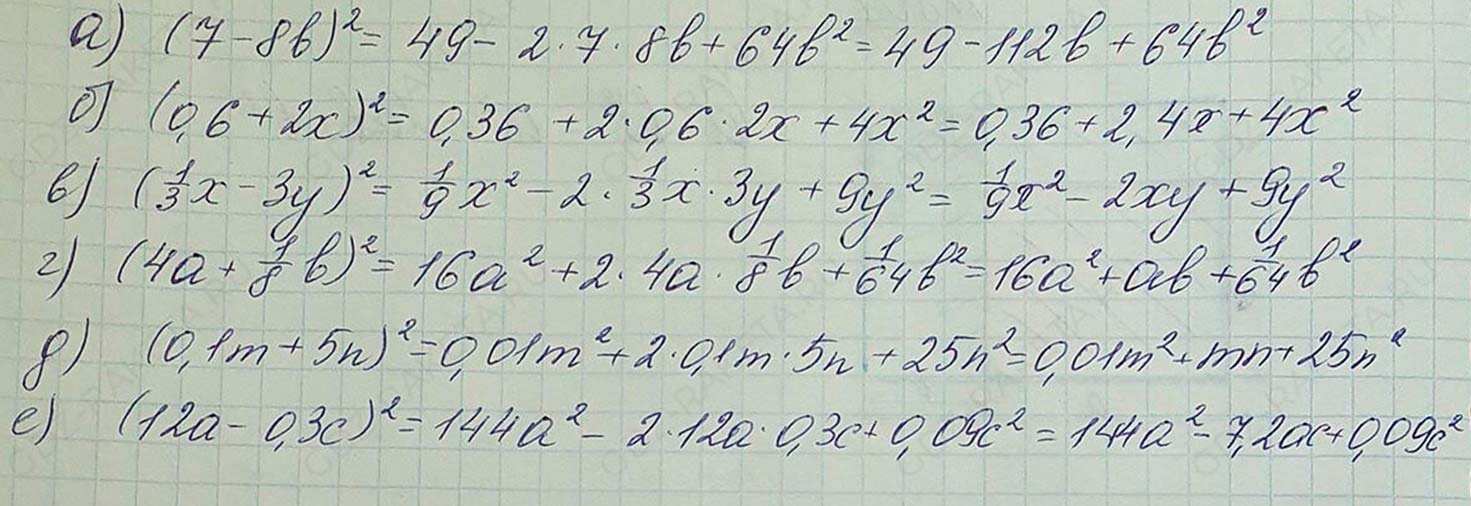 а) (7 - 8b)² = 49 - 2·7·8b + 64b² = 49 - 112b + 64b²
б) (0,6 + 2x)² = 0,36 + 2·0,6·2x + 4x² = 0,36 + 2,4x + 4x²
в) (1/3x - 3y)² = 1/9x² - 2·1/3x·3y + 9y² = 1/9x² - 2xy + 9y²
г) (4a + 1/8b)² = 16a² + 2·4a·1/8b + 1/64b² = 16a² + ab + 1/64b²
д) (0,1m + 5n)² = 0,01m² + 2·0,1m·5n + 25n² = 0,01m² + mn + 25n²
е) (12a - 0,3c)² = 144a² - 2·12a·0,3c + 0,09c² = 144a² - 7,2ac + 0,09c²